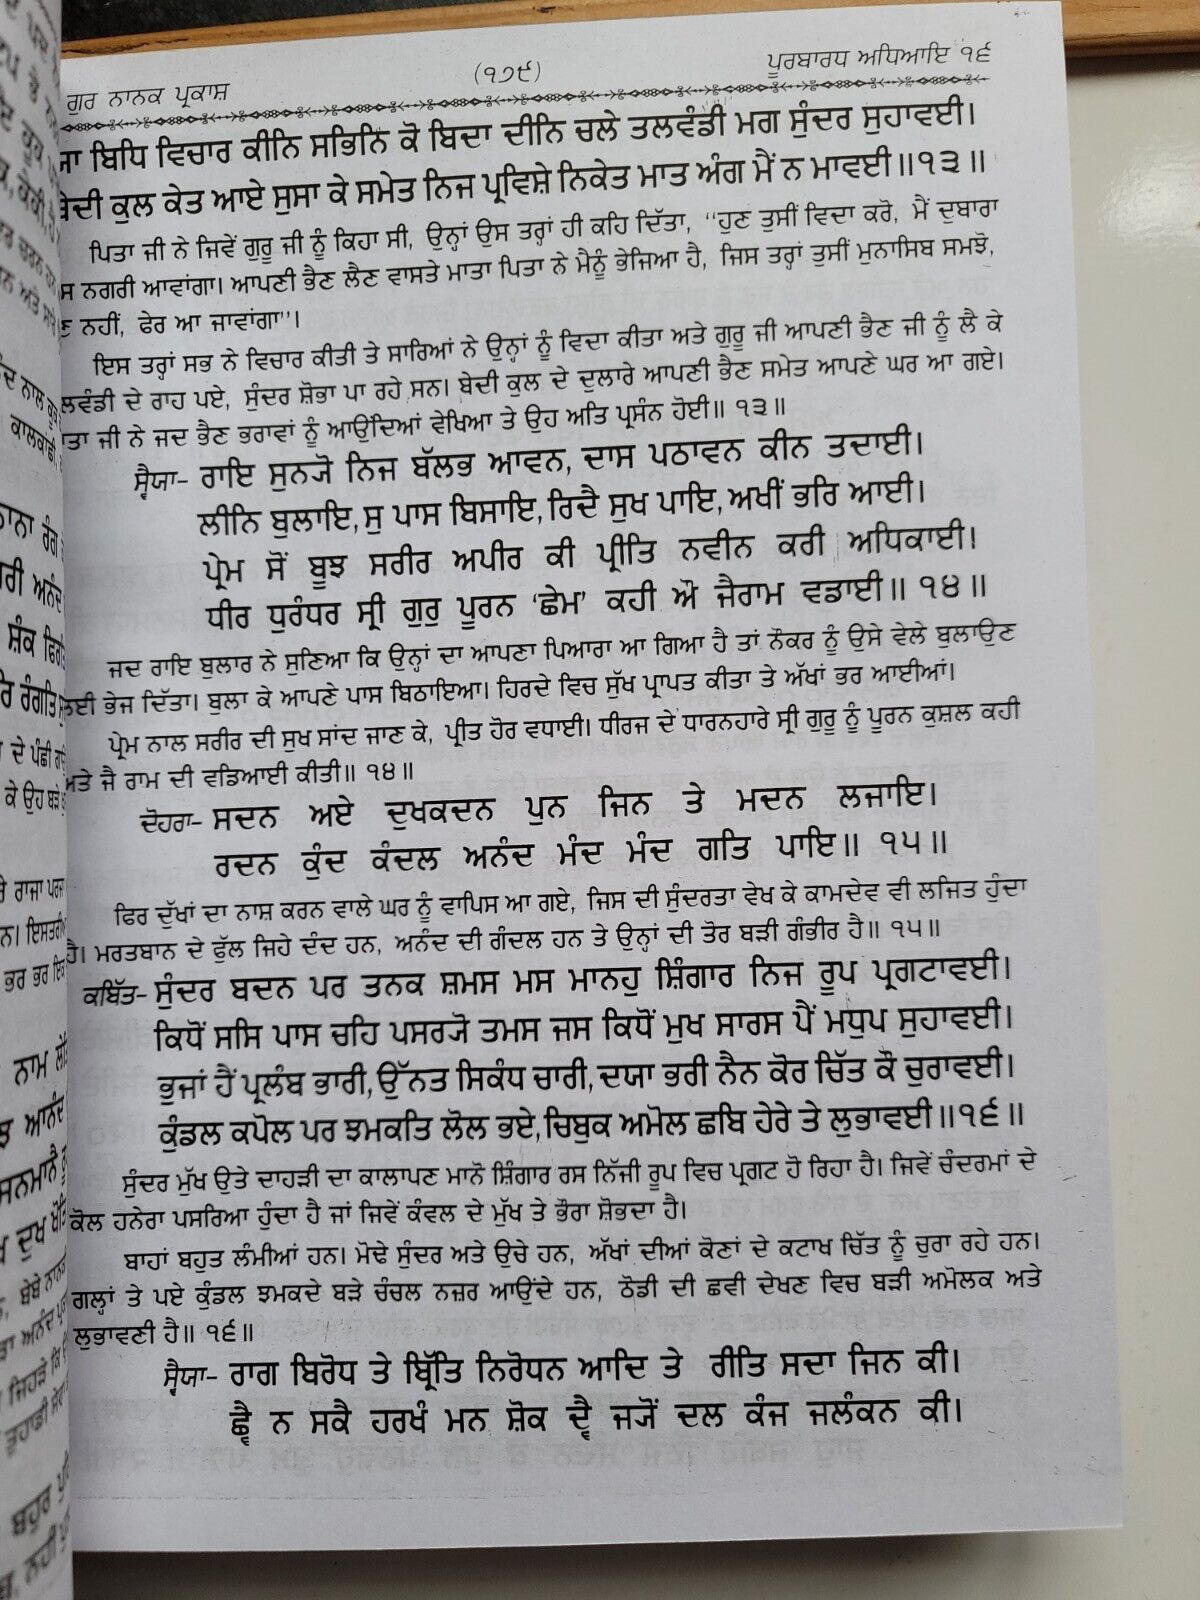 ਗੁਰ ਨਾਨਕ ਪ੍ਰਕਾਸ਼ (੧੭੯) ਪੂਰਬਾਰਧ ਅਧਿਆਇ ੧੬
ਬਿਧਿ ਵਿਚਾਰ ਕੀਨਿ ਸਭਿਨਿ ਕੋ ਬਿਦਾ ਦੀਨਿ ਚਲੇ ਤਲਵੰਡੀ ਮਗ ਸੁੰਦਰ ਸੁਹਾਵਈ।
ਕੁਲ ਕੇਤ ਆਏ ਸੁਸਾ ਕੇ ਸਮੇਤ ਨਿਜ ਪ੍ਰਵਿਸ਼ੇ ਨਿਕੇਤ ਮਾਤ ਅੰਗ ਮੈਂ ਨ ਮਾਵਈ॥੧੩॥
ਪਿਤਾ ਜੀ ਨੇ ਜਿਵੇਂ ਗੁਰੂ ਜੀ ਨੂੰ ਕਿਹਾ ਸੀ, ਉਨ੍ਹਾਂ ਉਸ ਤਰ੍ਹਾਂ ਹੀ ਕਹਿ ਦਿੱਤਾ, ''ਹੁਣ ਤੁਸੀਂ ਵਿਦਾ ਕਰੋ, ਮੈਂ ਦੁਬਾਰਾ
ਸ ਨਗਰੀ ਆਵਾਂਗਾ। ਆਪਣੀ ਭੈਣ ਲੈਣ ਵਾਸਤੇ ਮਾਤਾ ਪਿਤਾ ਨੇ ਮੈਨੂੰ ਭੇਜਿਆ ਹੈ, ਜਿਸ ਤਰ੍ਹਾਂ ਤੁਸੀਂ ਮੁਨਾਸਿਬ ਸਮਝੋ,
ਨਹੀਂ, ਫੇਰ ਆ ਜਾਵਾਂਗਾ''।
ਇਸ ਤਰ੍ਹਾਂ ਸਭ ਨੇ ਵਿਚਾਰ ਕੀਤੀ ਤੇ ਸਾਰਿਆਂ ਨੇ ਉਨ੍ਹਾਂ ਨੂੰ ਵਿਦਾ ਕੀਤਾ ਅਤੇ ਗੁਰੂ ਜੀ ਆਪਣੀ ਭੈਣ ਜੀ ਨੂੰ ਲੈ ਕੇ
ਲਵੰਡੀ ਦੇ ਰਾਹ ਪਏ, ਸੁੰਦਰ ਸ਼ੋਭਾ ਪਾ ਰਹੇ ਸਨ। ਬੇਦੀ ਕੁਲ ਦੇ ਦੁਲਾਰੇ ਆਪਣੀ ਭੈਣ ਸਮੇਤ ਆਪਣੇ ਘਰ ਆ ਗਏ।
ਜੀ ਨੇ ਜਦ ਭੈਣ ਭਰਾਵਾਂ ਨੂੰ ਆਉਂਦਿਆਂ ਵੇਖਿਆ ਤੇ ਉਹ ਅਤਿ ਪ੍ਰਸੰਨ ਹੋਈ॥ ੧੩॥
ਸ੍ਵੈਯਾ- ਰਾਇ ਸੁਨ੍ਯੋ ਨਿਜ ਬੱਲਭ ਆਵਨ, ਦਾਸ ਪਠਾਵਨ ਕੀਨ ਤਦਾਈ।
ਲੀਨਿ ਬੁਲਾਇ, ਸੁ ਪਾਸ ਬਿਸਾਇ, ਰਿਦੈ ਸੁਖ ਪਾਇ, ਅਖੀਂ ਭਰਿ ਆਈ।
ਪ੍ਰੇਮ ਸੋਂ ਬੂਝ ਸਰੀਰ ਅਪੀਰ ਕੀ ਪ੍ਰੀਤਿ ਨਵੀਨ ਕਰੀ ਅਧਿਕਾਈ।
ਧੀਰ ਧੁਰੰਧਰ ਸ੍ਰੀ ਗੁਰੁ ਪੂਰਨ 'ਛੇਮ' ਕਹੀ ਔ ਜੈਰਾਮ ਵਡਾਈ॥ ੧੪॥
ਜਦ ਰਾਇ ਬੁਲਾਰ ਨੇ ਸੁਣਿਆ ਕਿ ਉਨ੍ਹਾਂ ਦਾ ਆਪਣਾ ਪਿਆਰਾ ਆ ਗਿਆ ਹੈ ਤਾਂ ਨੌਕਰ ਨੂੰ ਉਸੇ ਵੇਲੇ ਬੁਲਾਉਣ
ਲਈ ਭੇਜ ਦਿੱਤਾ। ਬੁਲਾ ਕੇ ਆਪਣੇ ਪਾਸ ਬਿਠਾਇਆ। ਹਿਰਦੇ ਵਿਚ ਸੁੱਖ ਪ੍ਰਾਪਤ ਕੀਤਾ ਤੇ ਅੱਖਾਂ ਭਰ ਆਈਆਂ।
ਪ੍ਰੇਮ ਨਾਲ ਸਰੀਰ ਦੀ ਸੁਖ ਸਾਂਦ ਜਾਣ ਕੇ, ਪ੍ਰੀਤ ਹੋਰ ਵਧਾਈ। ਧੀਰਜ ਦੇ ਧਾਰਨਹਾਰੇ ਸ੍ਰੀ ਗੁਰੂ ਨੂੰ ਪੂਰਨ ਕੁਸ਼ਲ ਕਹੀ
ਅਤੇ ਜੈ ਰਾਮ ਦੀ ਵਡਿਆਈ ਕੀਤੀ॥ ੧੪॥
ਦੋਹਰਾ- ਸਦਨ ਅਏ ਦੁਖਕਦਨ ਪੁਨ ਜਿਨ ਤੇ ਮਦਨ ਲਜਾਇ।
ਰਦਨ ਕੁੰਦ ਕੰਦਲ ਅਨੰਦ ਮੰਦ ਮੰਦ ਗਤਿ ਪਾਇ॥ ੧੫॥
ਫਿਰ ਦੁੱਖਾਂ ਦਾ ਨਾਸ਼ ਕਰਨ ਵਾਲੇ ਘਰ ਨੂੰ ਵਾਪਿਸ ਆ ਗਏ, ਜਿਸ ਦੀ ਸੁੰਦਰਤਾ ਵੇਖ ਕੇ ਕਾਮਦੇਵ ਵੀ ਲਜਿਤ ਹੁੰਦਾ
ਹੈ। ਮਰਤਬਾਨ ਦੇ ਫੁੱਲ ਜਿਹੇ ਦੰਦ ਹਨ, ਅਨੰਦ ਦੀ ਗੰਦਲ ਹਨ ਤੇ ਉਨ੍ਹਾਂ ਦੀ ਤੋਰ ਬੜੀ ਗੰਭੀਰ ਹੈ॥ ੧੫॥
ਕਬਿੱਤ- ਸੁੰਦਰ ਬਦਨ ਪਰ ਤਨਕ ਸ਼ਮਸ ਮਸ ਮਾਨਹੁ ਸ਼ਿੰਗਾਰ ਨਿਜ ਰੂਪ ਪ੍ਰਗਟਾਵਈ।
ਕਿਧੋਂ ਸਸਿ ਪਾਸ ਚਹਿ ਪਸਰ੍ਯੋ ਤਮਸ ਜਸ ਕਿਧੋਂ ਮੁਖ ਸਾਰਸ ਪੈਂ ਮਧੁਪ ਸੁਹਾਵਈ।
ਭੁਜਾਂ ਹੈਂ ਪ੍ਰਲੰਬ ਭਾਰੀ, ਉੱਨਤ ਸਿਕੰਧ ਚਾਰੀ, ਦਯਾ ਭਰੀ ਨੈਨ ਕੋਰ ਚਿੱਤ ਕੌ ਚੁਰਾਵਈ।
ਕੁੰਡਲ ਕਪੋਲ ਪਰ ਝਮਕਤਿ ਲੋਲ ਭਏ, ਚਿਬੁਕ ਅਮੋਲ ਛਬਿ ਹੇਰੇ ਤੇ ਲੁਭਾਵਈ॥੧੬॥
ਸੁੰਦਰ ਮੁੱਖ ਉਤੇ ਦਾਹੜੀ ਦਾ ਕਾਲਾਪਣ ਮਾਨੋ ਸ਼ਿੰਗਾਰ ਰਸ ਨਿੱਜੀ ਰੂਪ ਵਿਚ ਪ੍ਰਗਟ ਹੋ ਰਿਹਾ ਹੈ। ਜਿਵੇਂ ਚੰਦਰਮਾਂ ਦੇ
ਕੋਲ ਹਨੇਰਾ ਪਸਰਿਆ ਹੁੰਦਾ ਹੈ ਜਾਂ ਜਿਵੇਂ ਕੰਵਲ ਦੇ ਮੁੱਖ ਤੇ ਭੌਰਾ ਸ਼ੋਭਦਾ ਹੈ।
ਬਾਹਾਂ ਬਹੁਤ ਲੰਮੀਆਂ ਹਨ। ਮੋਢੇ ਸੁੰਦਰ ਅਤੇ ਉਚੇ ਹਨ, ਅੱਖਾਂ ਦੀਆਂ ਕੋਣਾਂ ਦੇ ਕਟਾਖ ਚਿੱਤ ਨੂੰ ਚੁਰਾ ਰਹੇ ਹਨ।
ਗਲ੍ਹਾਂ ਤੇ ਪਏ ਕੁੰਡਲ ਝਮਕਦੇ ਬੜੇ ਚੰਚਲ ਨਜ਼ਰ ਆਉਂਦੇ ਹਨ, ਠੋਡੀ ਦੀ ਛਵੀ ਦੇਖਣ ਵਿਚ ਬੜੀ ਅਮੋਲਕ ਅਤੇ
ਲੁਭਾਵਣੀ ਹੈ॥ ੧੬॥
ਸ੍ਵੈਯਾ- ਰਾਗ ਬਿਰੋਧ ਤੇ ਬ੍ਰਿੱਤਿ ਨਿਰੋਧਨ ਆਦਿ ਤੇ ਰੀਤਿ ਸਦਾ ਜਿਨ ਕੀ।
ਛ੍ਵੈ ਨ ਸਕੈ ਹਰਖੰ ਮਨ ਸ਼ੋਕ ਦ੍ਵੈ ਜ੍ਯੋਂ ਦਲ ਕੰਜ ਜਲੰਕਨ ਕੀ।